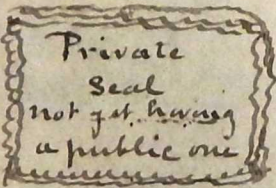 Private
Seal
not yet having
a public one